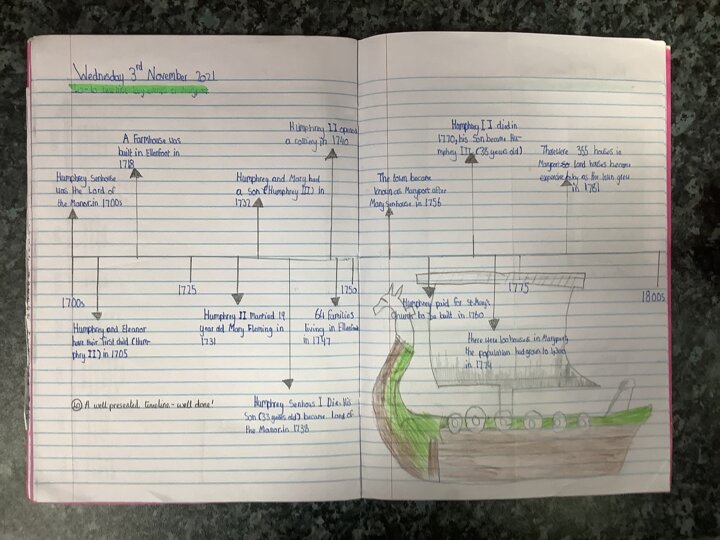 Wednesday 3rd November 2021
A Farmhouse was
built in Ellenfoot in
1718
Humphrey Senhouse
was the Lord of
the Manor.in 1700s
Humphrey and Mary had
a son (Humphrey III) in
1737
Humphrey II opened
a colliery in 1740
The town became
known as Maryport after
Mary Senhouse in 1756
Humphrey II died in
1770, his Son became Hu-
mphrey III. (35 years old)
There were 355 houses in
Maryport land houses became
expensive to buy as the town grew
in 1781
1700s
1725
1750
1775
1800s
Humphrey and Eleanor
have their first child (Hum-
phry II) in 1705
Humphry II Married 19
year old Mary Fleming in
1731
64 families
living in Ellenfoot
in 1747
Humphrey paid for St.Mary's
church to be built in 1760
there were houses in Maryport,
the population had grown to
in 1774
Humphry Senhous I Die. His
Son (33 years old) became Lord of
the Manor.in 1738
A well presented timeline - well done!